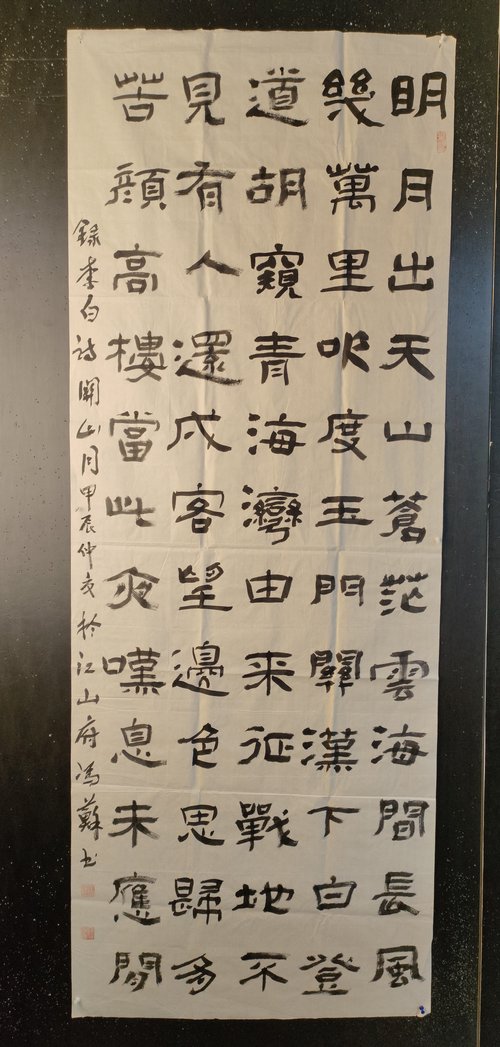 眀月出天山蒼茫雲海間長風
幾萬里吹度玉門關漢下白登
道胡窺青海灣由来征戰地不
見有人還戍客望邊色思歸多
苦顏高樓當此夜嘆息未應閒
錄李白詩關山月甲辰仲夏於江山府馮蘇书